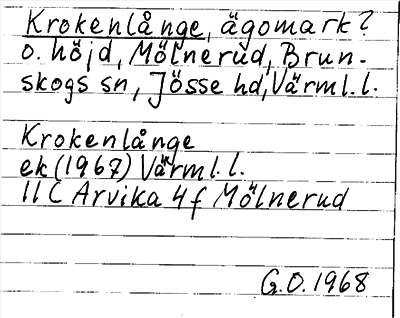 Krokenlånge, ägomark?
o. höjd, Mölnerud, Brun-
skogs sn, Jösse hd, Värml. l.
Krokenlånge
ek (1967) Värml. l.
11 C Arvika 4 f Mölnerud
G.O. 1968